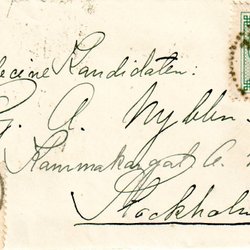 ecine Kandidaten:
G. A. Nyblin
Kammakargat. 6.
Stockholm